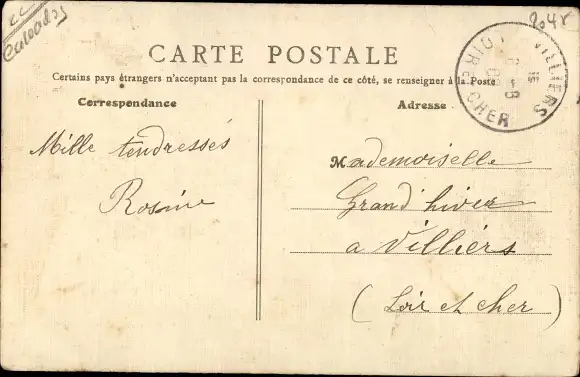 Calvados
2048
VILLIERS
LOIR & CHER
CARTE POSTALE
Certains pays étrangers n'acceptant pas la correspondance de ce côté, se renseigner à la Poste
Correspondance
Adresse
Mille tendresses
Rosine
Mademoiselle
Grand'hiver
a Villiers
(Loir et cher)